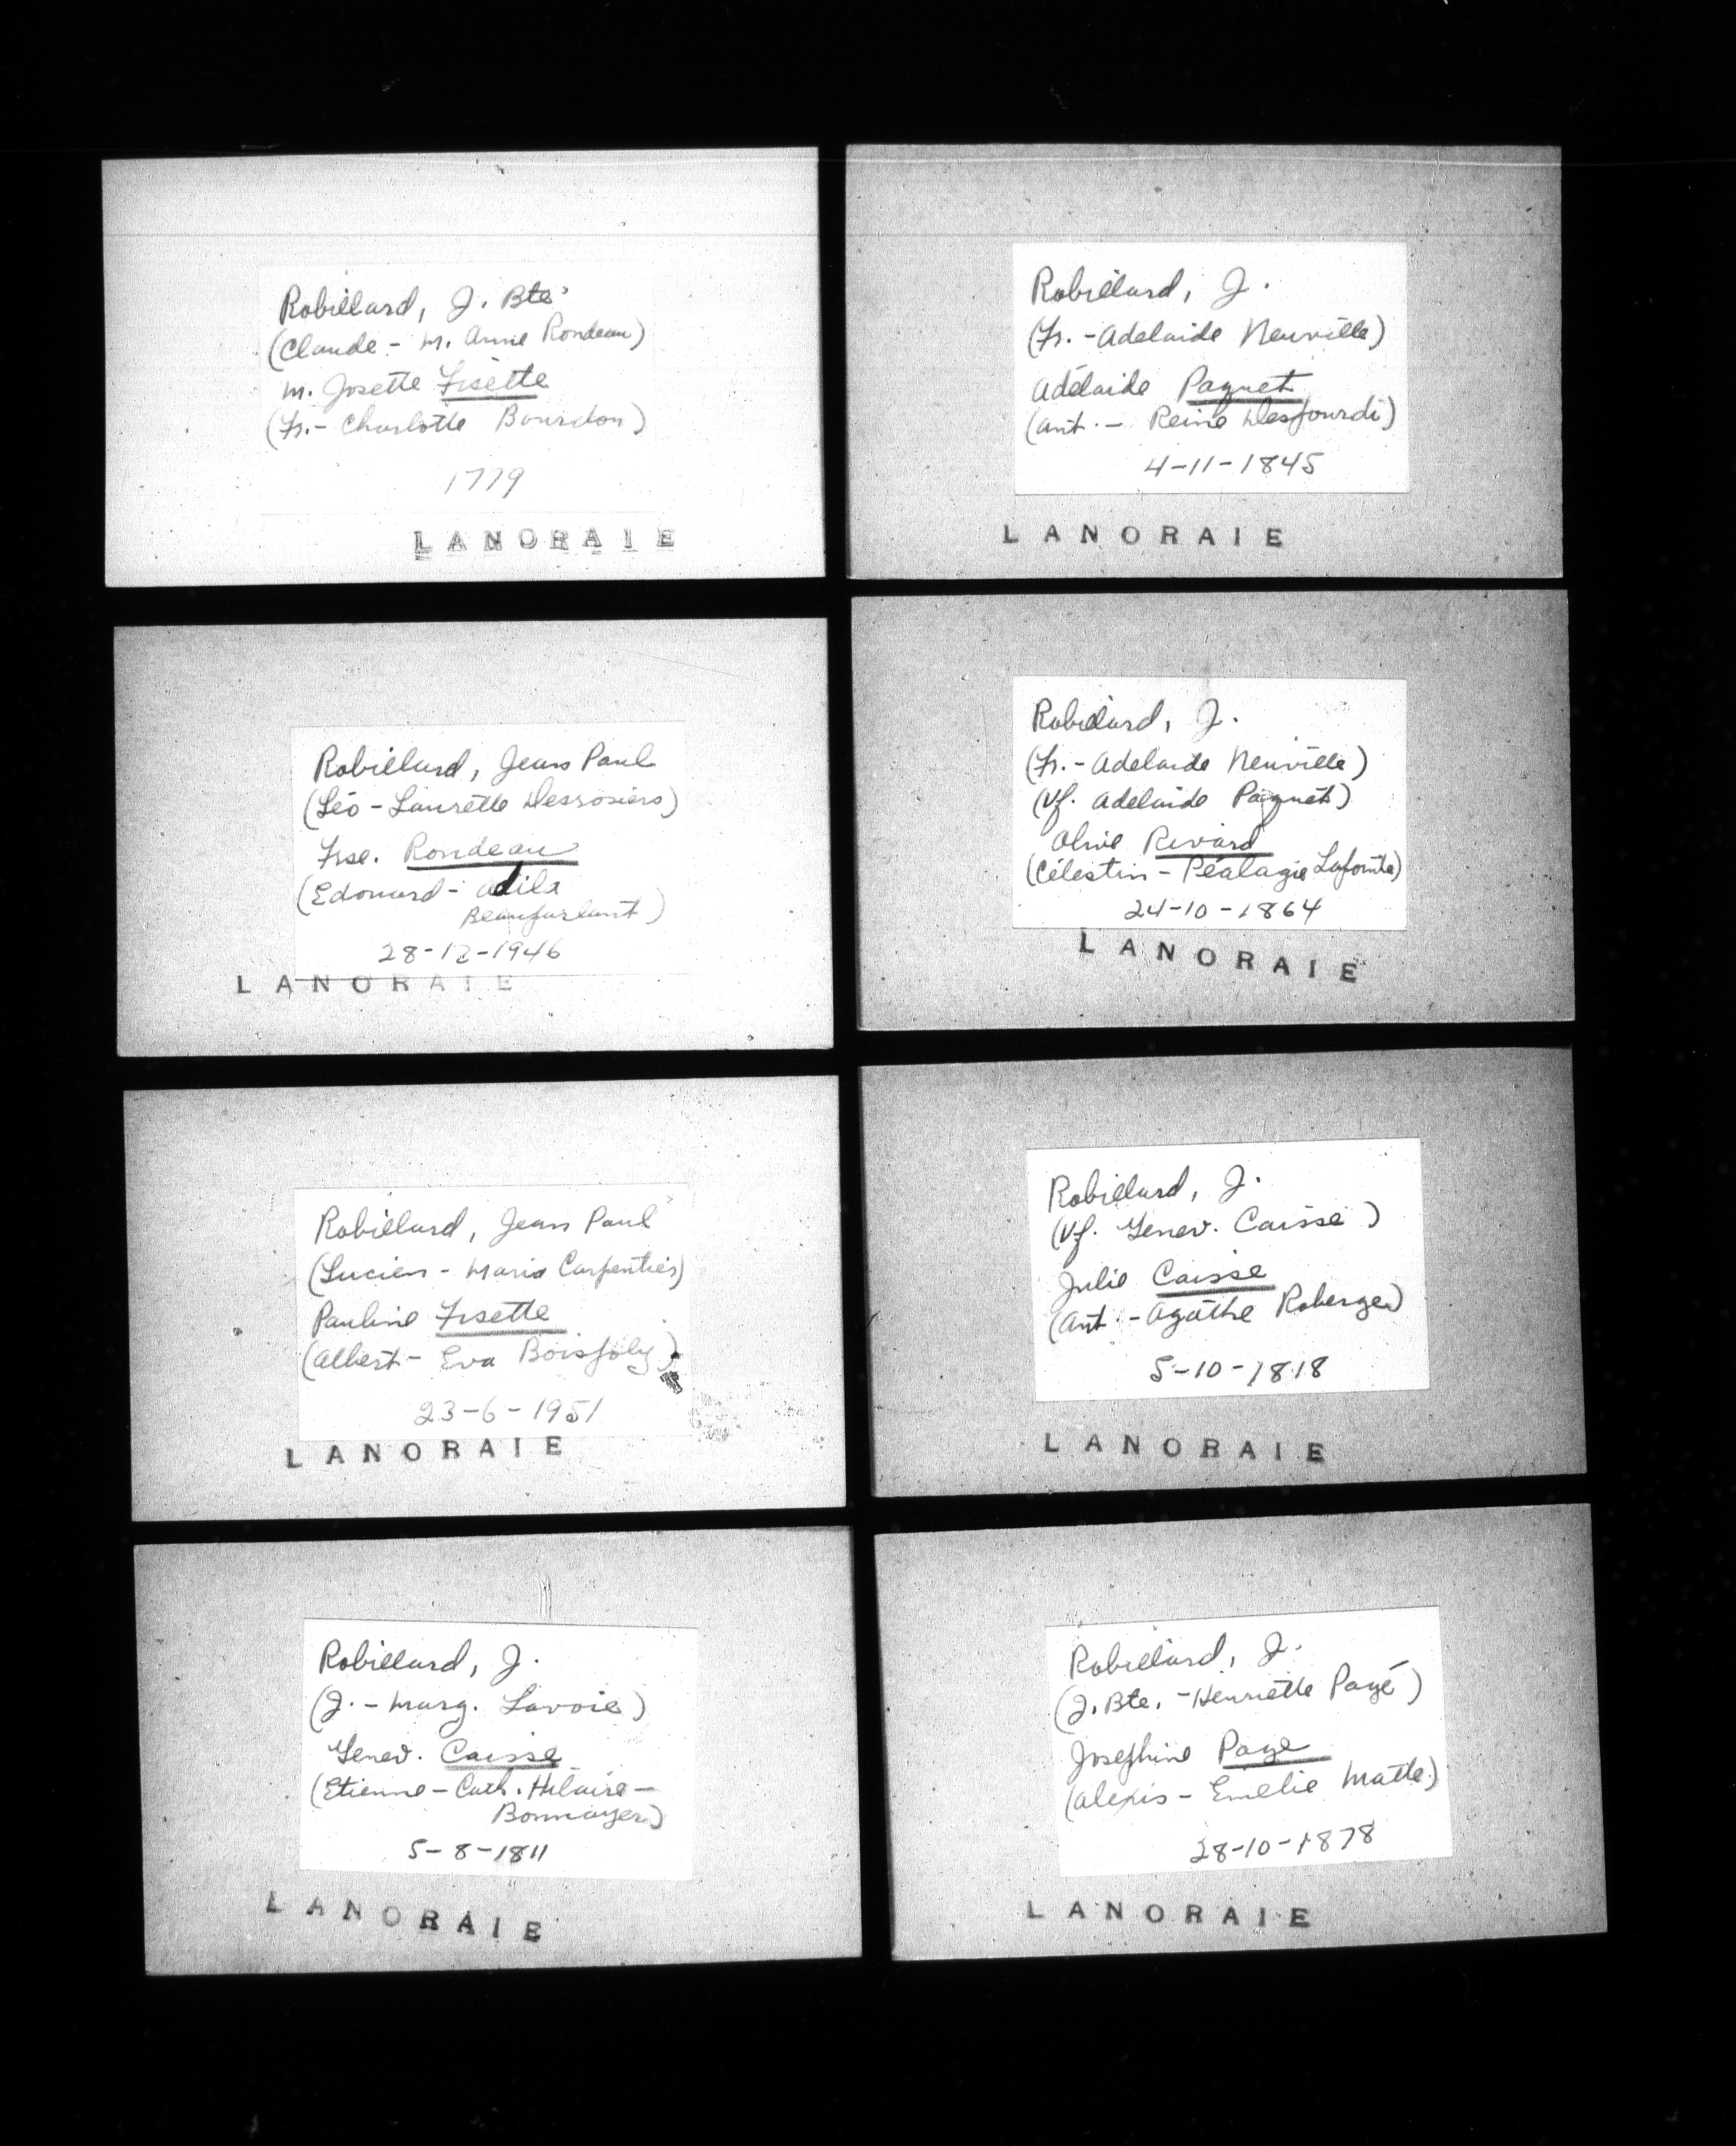 Robillard, J. Bte.
(Claude - M. Anne Rondeau)
M. Josette Fisette
(Fr. - Charlotte Bourdon)
1779
LANORAIE
Robillard, Jean Paul
(Léo - Laurette Desrosiers)
Frse. Rondeau
(Edouard - Adila
Beauparlant)
28-12-1946
LANORAIE
Robillard, Jean Paul
(Lucien - Maria Carpentier)
Pauline Fisette
(Albert - Eva Boisjoly)
23-6-1951
LANORAIE
Robillard, J.
(J. - Marg. Lavoie)
Genev. Caisse
(Etienne - Cath. Hilaire -
Bonmayer)
5-8-1811
LANORAIE
Robillard, J.
(Fr. - Adelaide Neuville)
Adélaide Paquet
(Ant. - Reine Desjourdi)
4-11-1845
LANORAIE
Robillard, J.
(Fr. - Adelaide Neuville)
(Vf. Adelaide Paquet)
Olive Rivard
(Célestin - Péalagie Lafonte)
24-10-1864
LANORAIE
Robillard, J.
(Vf. Genev. Caisse)
Julie Caisse
(Ant. - Agathe Roberge)
5-10-1818
LANORAIE
Robillard, J.
(J. Bte. - Henriette Pagé)
Josephine Page
(Alexis - Emelie Matte)
28-10-1878
LANORAIE